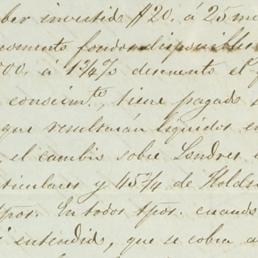 ber invertido $20. á 25 m
vamente fondos disponibles
00. a 1¾% descuento el f
conocimto, tiene pagado s
que resultarán líquidos e
el cambio sobre Londres
ticulares y 45¾ de Holds
tpos. En todos tpos. cuando
i entendido, que se cobra a